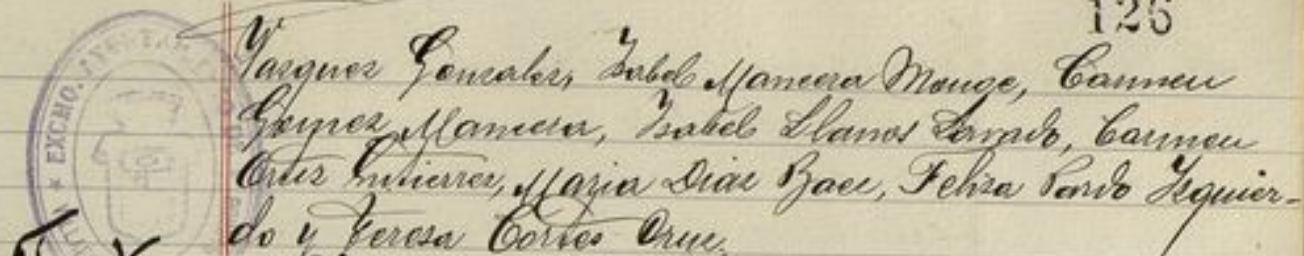 125
Vazquez Gonzalez, Isabel Mancera Monge, Carmen
Gomez Mancera, Isabel Llanos Lavado, Carmen
Cruz Gutierrez, Maria Diaz Baez, Feliza Pardo Izquier-
do y Teresa Cortes Cruz.
EXCMO. AYUNTAM